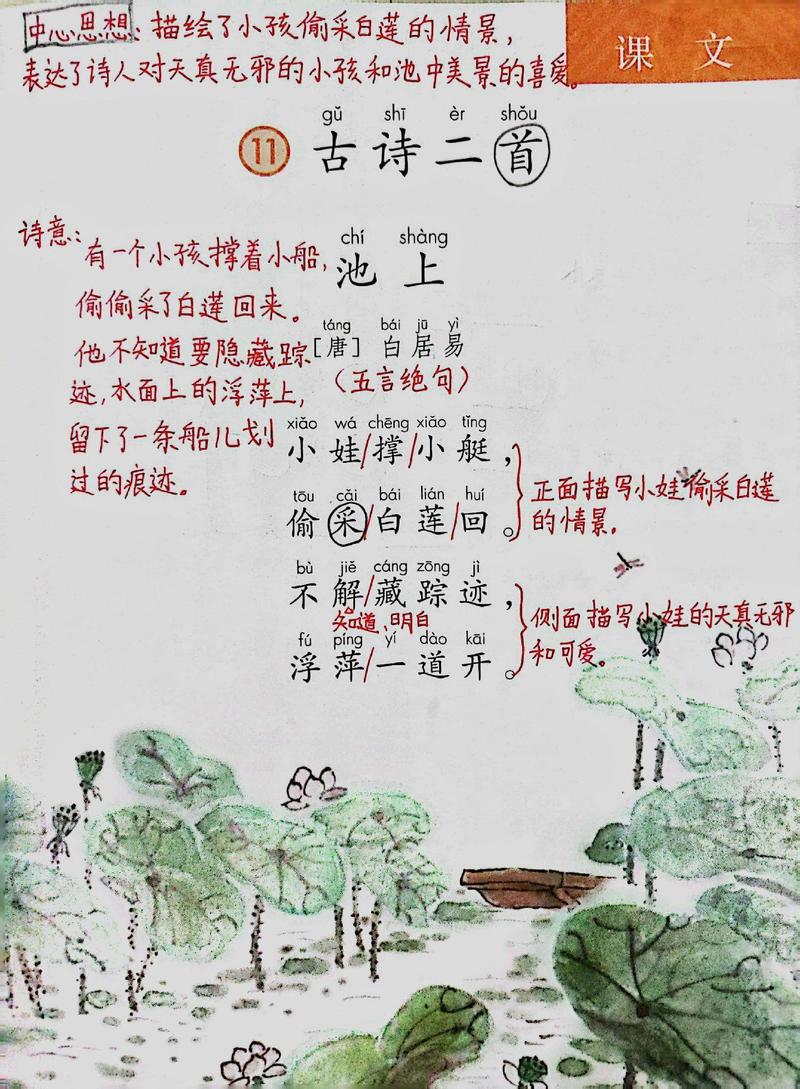 中心思想：描绘了小孩偷采白莲的情景，
表达了诗人对天真无邪的小孩和池中美景的喜爱。
课文
gǔ shī èr shǒu
11 古诗二首
诗意：
有一个小孩撑着小船，
偷偷采了白莲回来。
他不知道要隐藏踪
迹，水面上的浮萍上，
留下了一条船儿划
过的痕迹。
chí shàng
池上
táng bái jū yì
［唐］白居易
（五言绝句）
xiǎo wá chēng xiǎo tǐng
小娃/撑/小艇，
tōu cǎi bái lián huí
偷采/白莲/回。
正面描写小娃偷采白莲
的情景。
bù jiě cáng zōng jì
不解/藏踪迹，
知道、明白
fú píng yí dào kāi
浮萍/一道开。
侧面描写小娃的天真无邪
和可爱。